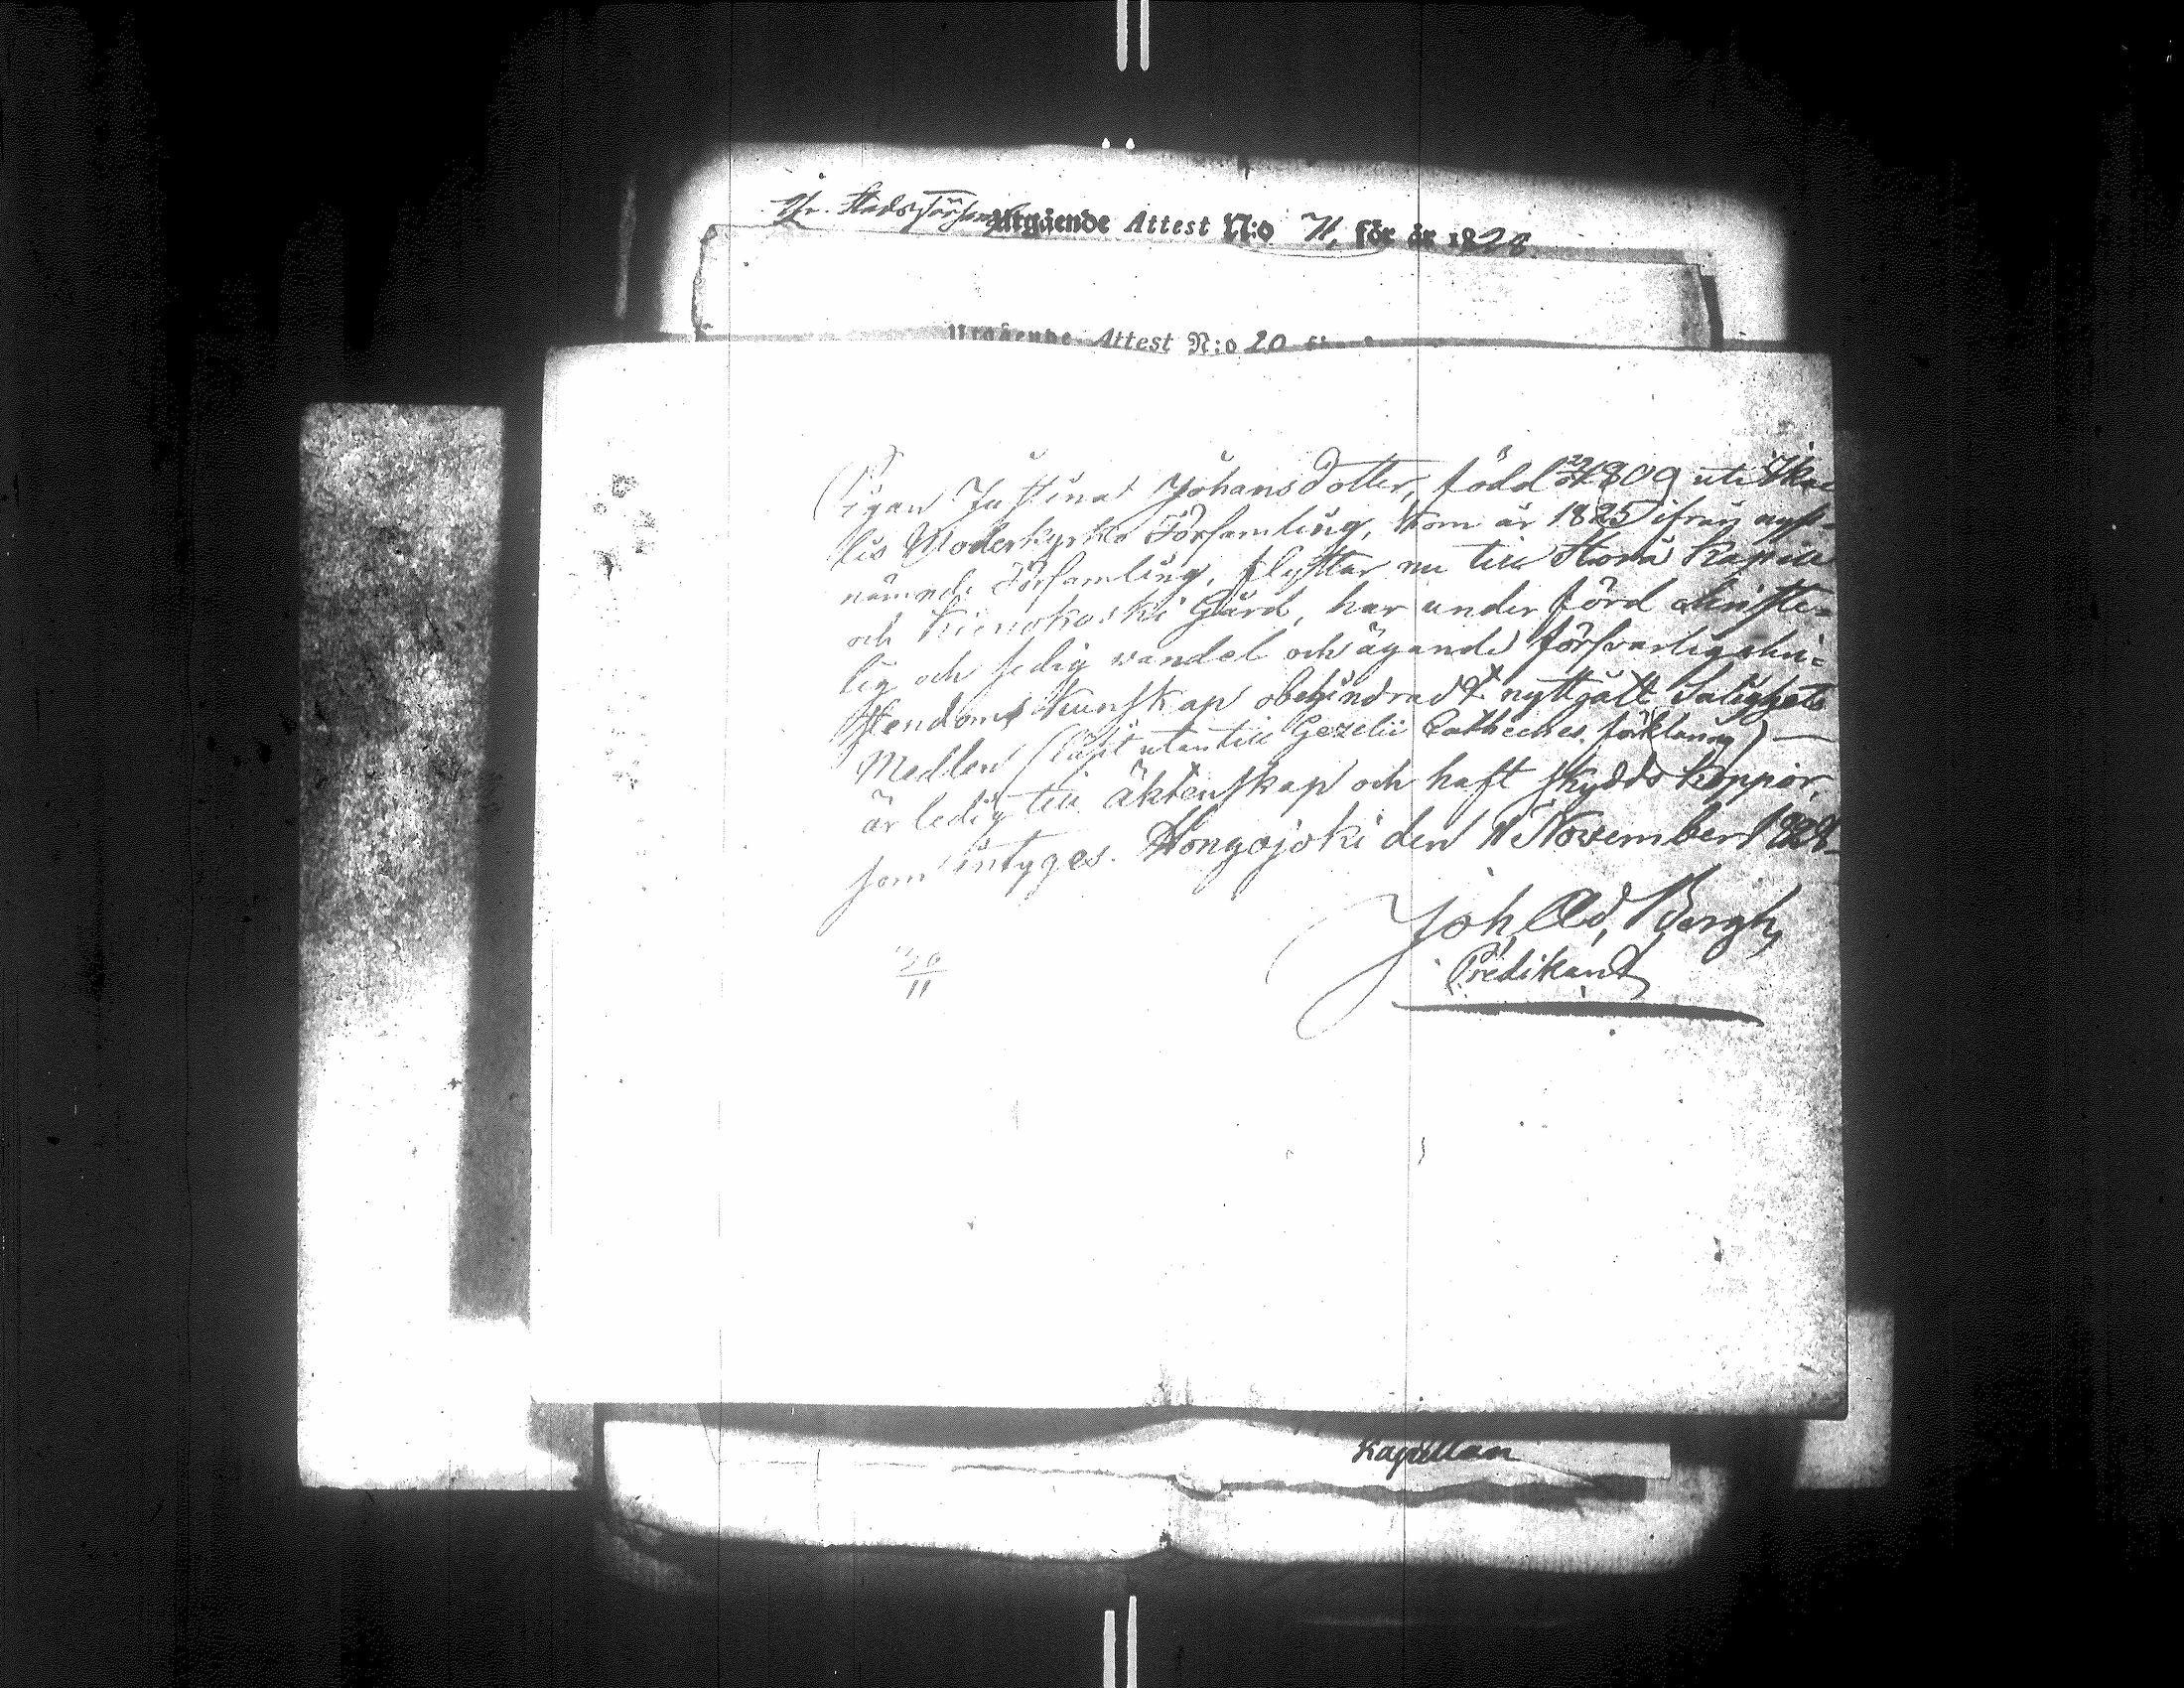 Utgående Attest N:o 71, för år 1828
Utgående Attest N:o 20
Pigan Justina Johansdotter, född 1809 uti Ikaa-
lis Moderkyrko Församling, kom år 1825 ifrån nyss-
nämnde Församling, flyttar nu till Storå Kapell
och Gård, har under förd christe-
lig och sedig vandel och ägande försvarlig chri-
stendoms kunskap obehindradt nyttjatt Salighets
Medlen (läst utantill Gezelii Cathches. förklaring)
är ledig till äktenskap och haft skydds koppor,
som intyges. Hongojoki den 11 November 1828
Joh. Ad. Bergh,
Predikant
11
Kapellan